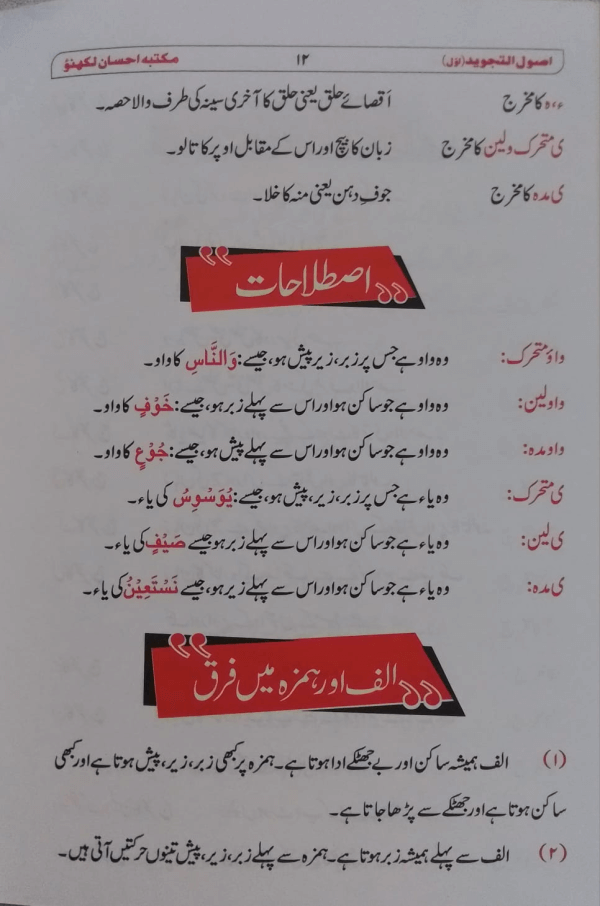 اصول التجوید (اوّل) ۱۲ مکتبہ احسان لکھنؤ
ء، ہ کا مخرج اَقصائے حلق یعنی حلق کا آخری سینہ کی طرف والا حصہ۔
ی متحرک ولین کا مخرج زبان کا بیچ اور اس کے مقابل اوپر کا تالو۔
ی مدہ کا مخرج جوفِ دہن یعنی منہ کا خلا۔
اصطلاحات
واؤ متحرک: وہ واو ہے جس پر زبر، زیر پیش ہو، جیسے: وَالنَّاسِ کا واو۔
واو لین: وہ واو ہے جو ساکن ہو اور اس سے پہلے زبر ہو، جیسے: خَوْفٍ کا واو۔
واو مدہ: وہ واو ہے جو ساکن ہو اور اس سے پہلے پیش ہو، جیسے: جُوْعٍ کا واو۔
ی متحرک: وہ یاء ہے جس پر زبر، زیر، پیش ہو، جیسے: یُوَسْوِسُ کی یاء۔
ی لین: وہ یاء ہے جو ساکن ہو اور اس سے پہلے زبر ہو جیسے صَیْفٍ کی یاء۔
ی مدہ: وہ یاء ہے جو ساکن ہو اور اس سے پہلے زیر ہو، جیسے نَسْتَعِیْنُ کی یاء۔
الف اور ہمزہ میں فرق
(۱) الف ہمیشہ ساکن اور بے جھٹکے ادا ہوتا ہے۔ ہمزہ پر کبھی زبر، زیر، پیش ہوتا ہے اور کبھی
ساکن ہوتا ہے اور جھٹکے سے پڑھا جاتا ہے۔
(۲) الف سے پہلے ہمیشہ زبر ہوتا ہے۔ ہمزہ سے پہلے زبر، زیر، پیش تینوں حرکتیں آتی ہیں۔